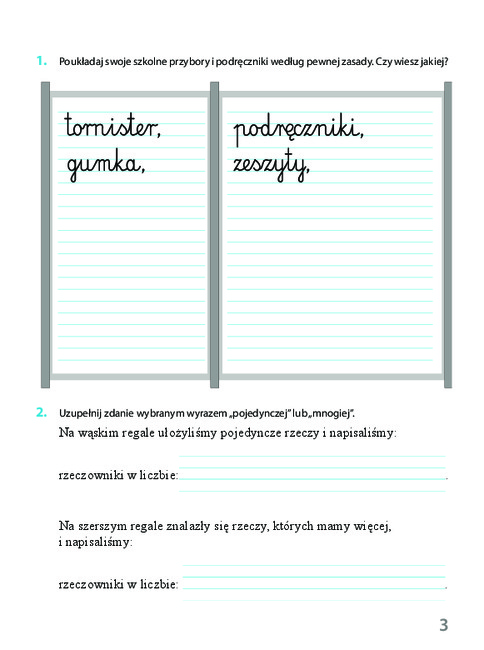 1. Poukładaj swoje szkolne przybory i podręczniki według pewnej zasady. Czy wiesz jakiej?
tornister,
gumka,
podręczniki,
zeszyty,
2. Uzupełnij zdanie wybranym wyrazem „pojedynczej” lub „mnogiej”.
Na wąskim regale ułożyliśmy pojedyncze rzeczy i napisaliśmy:
rzeczowniki w liczbie: .
Na szerszym regale znalazły się rzeczy, których mamy więcej,
i napisaliśmy:
rzeczowniki w liczbie: .
3